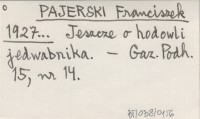 PAJERSKI Franciszek
1927... Jeszcze o hodowli
jedwabnika. — Gaz. Podh.
15, nr 14.